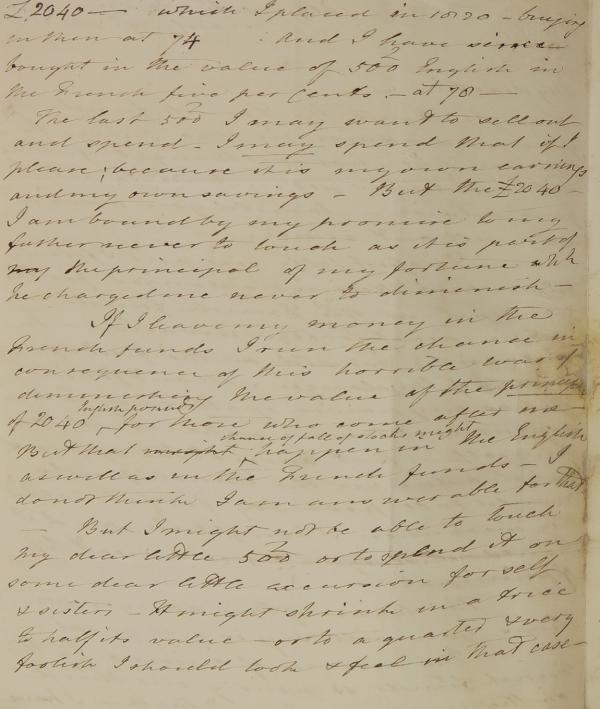 £2040 — which I placed in 1820 - buying
in then at 74 . And I have since
bought in the value of 500 English in
the French five per Cents . — at 78 —
The last 500 I may want to sell out
and spend - I may spend that if I
please; because it is my own earnings
and my own savings - But the £2040 -
I am bound by my promise to my
father never to touch as it is part of
my the principal of my fortune which
he charged me never to diminish —
If I leave my money in the
French funds I run the chance in
consequence of this horrible war of
diminishing the value of the principal
English pounds
of 2040 ^ for those who come after me —
chance of fall of stocks might
But that might ^ happen in the English
as well as in the French funds - I
do not think I am answerable for that
— But I might not be able to touch
my dear little 500 or to spend it on
some dear little excursion for self
& sisters - It might shrink in a trice
to half its value - or to a quarter & very
foolish I should look & feel in that case -